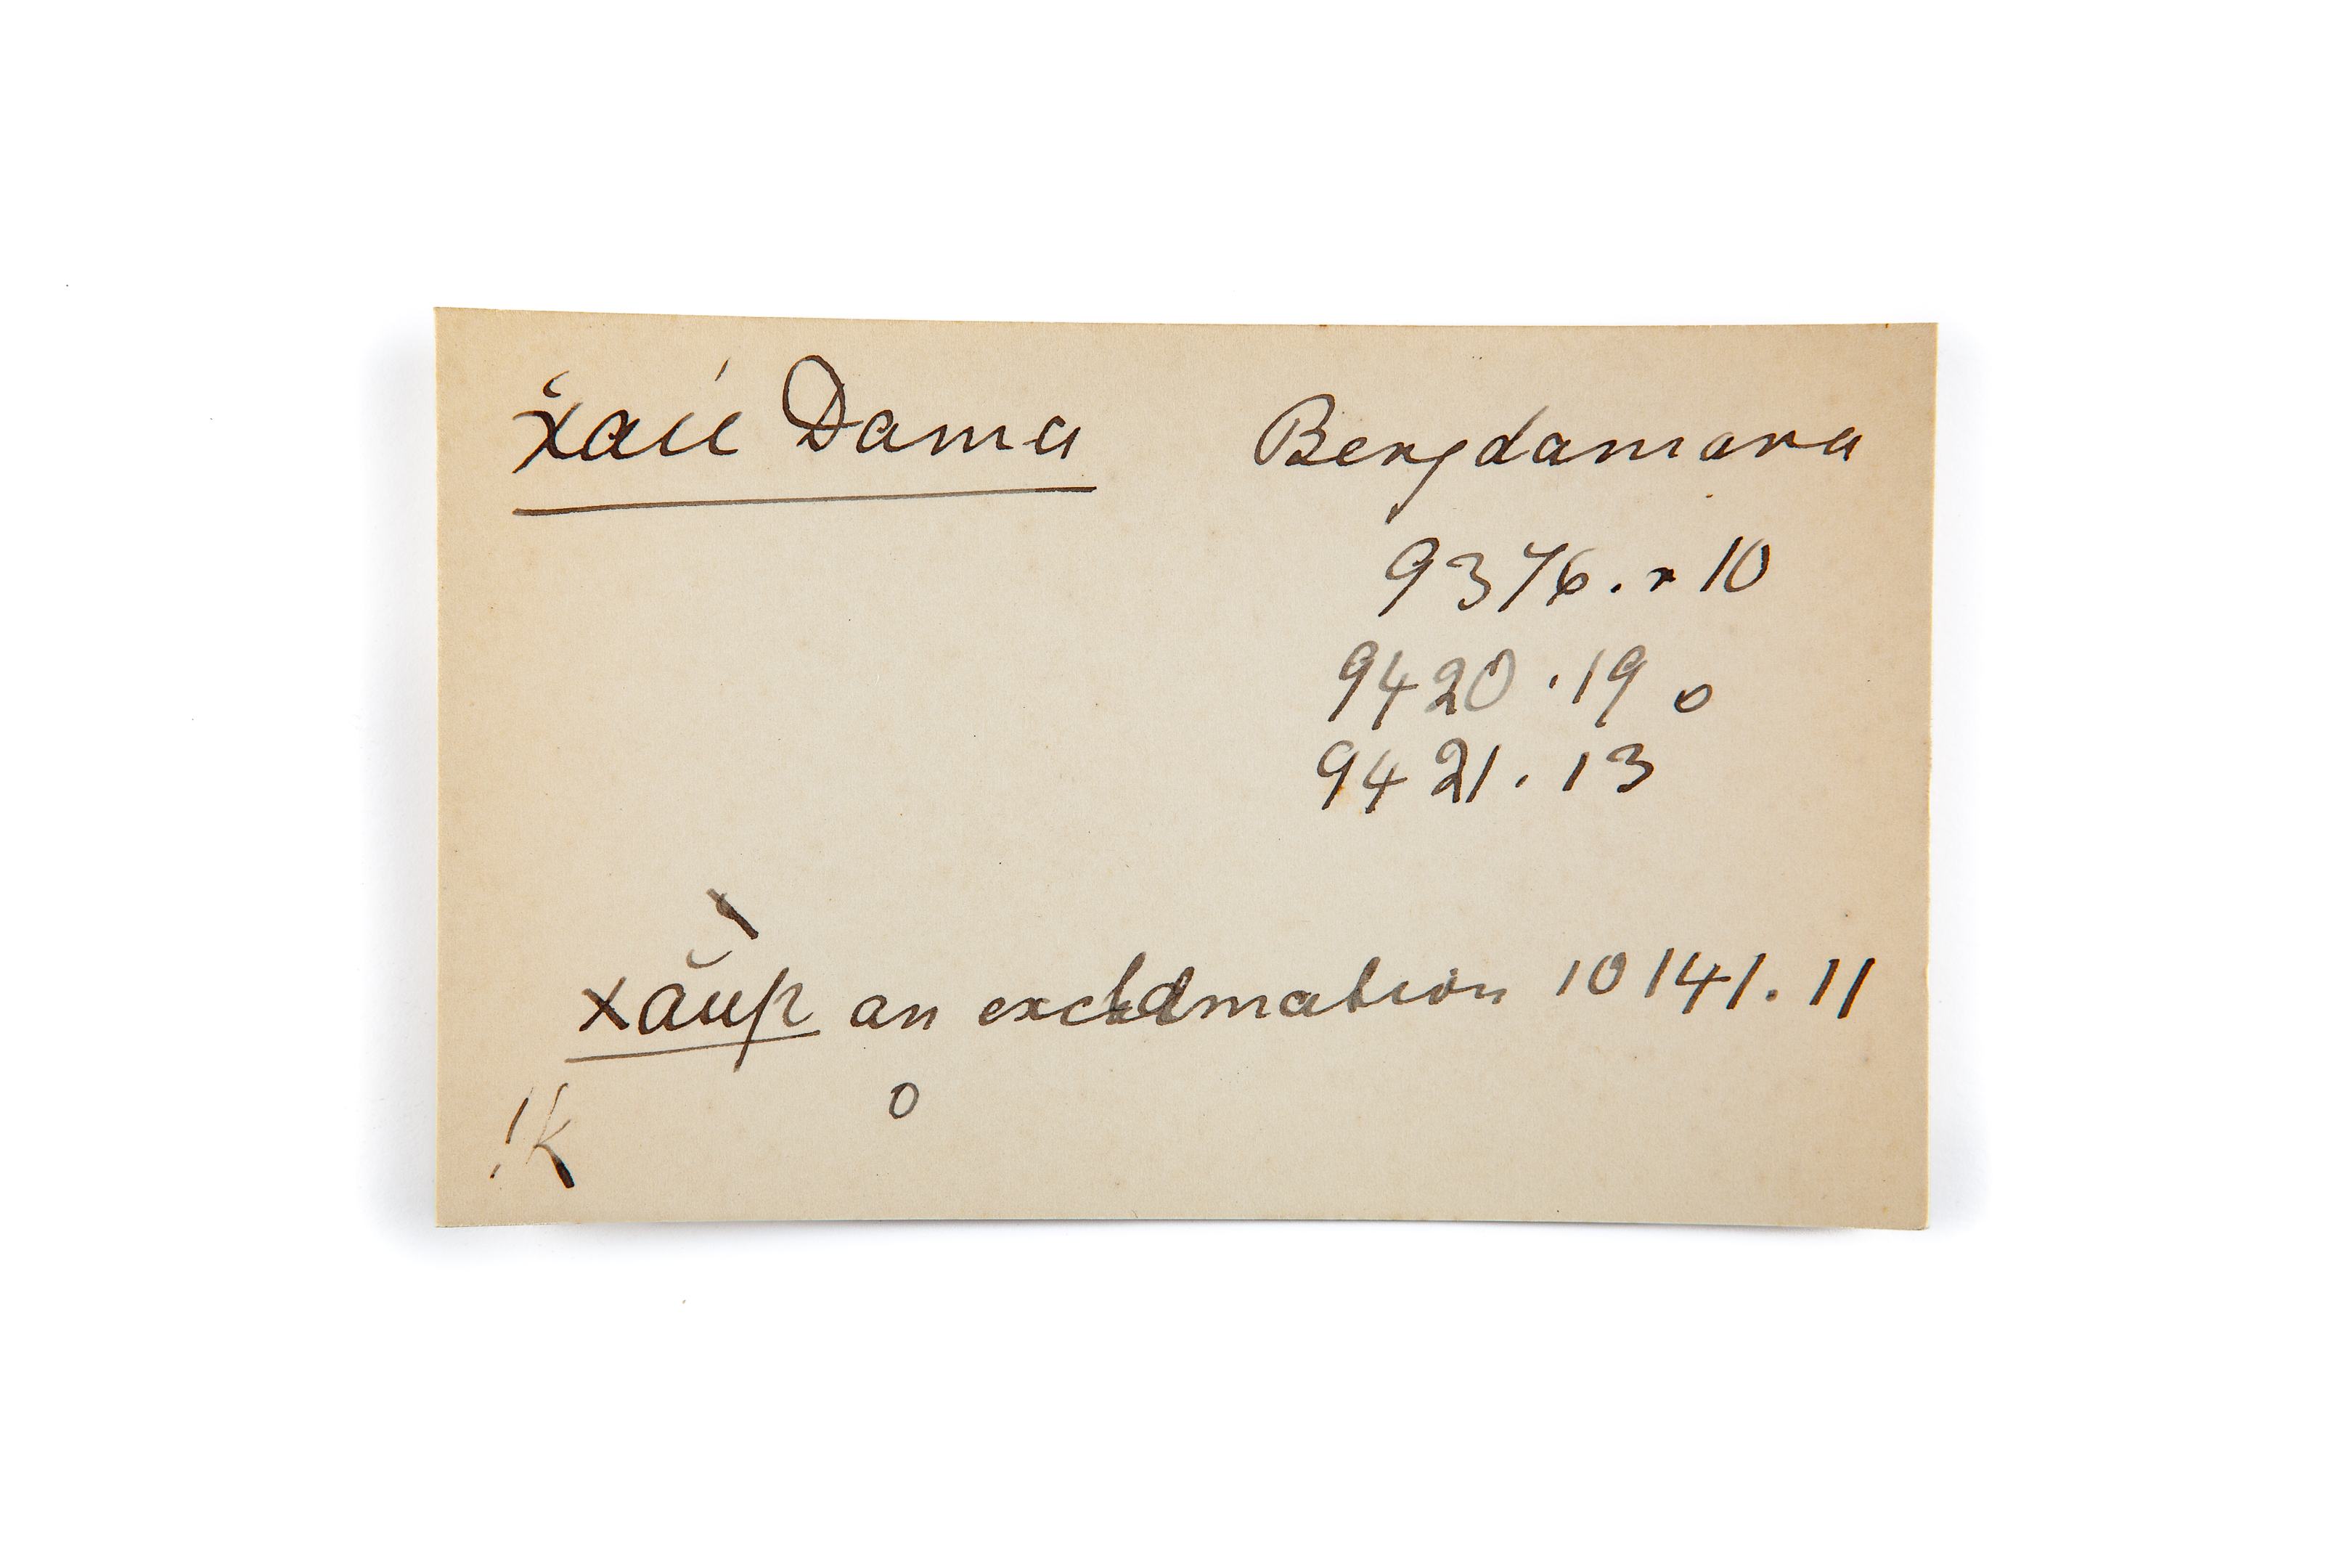 x̌aií Dama Bergdamara
9376. r 10
9420 . 19 o
9421. 13
xăup an exclamation 10141. 11
o
!k